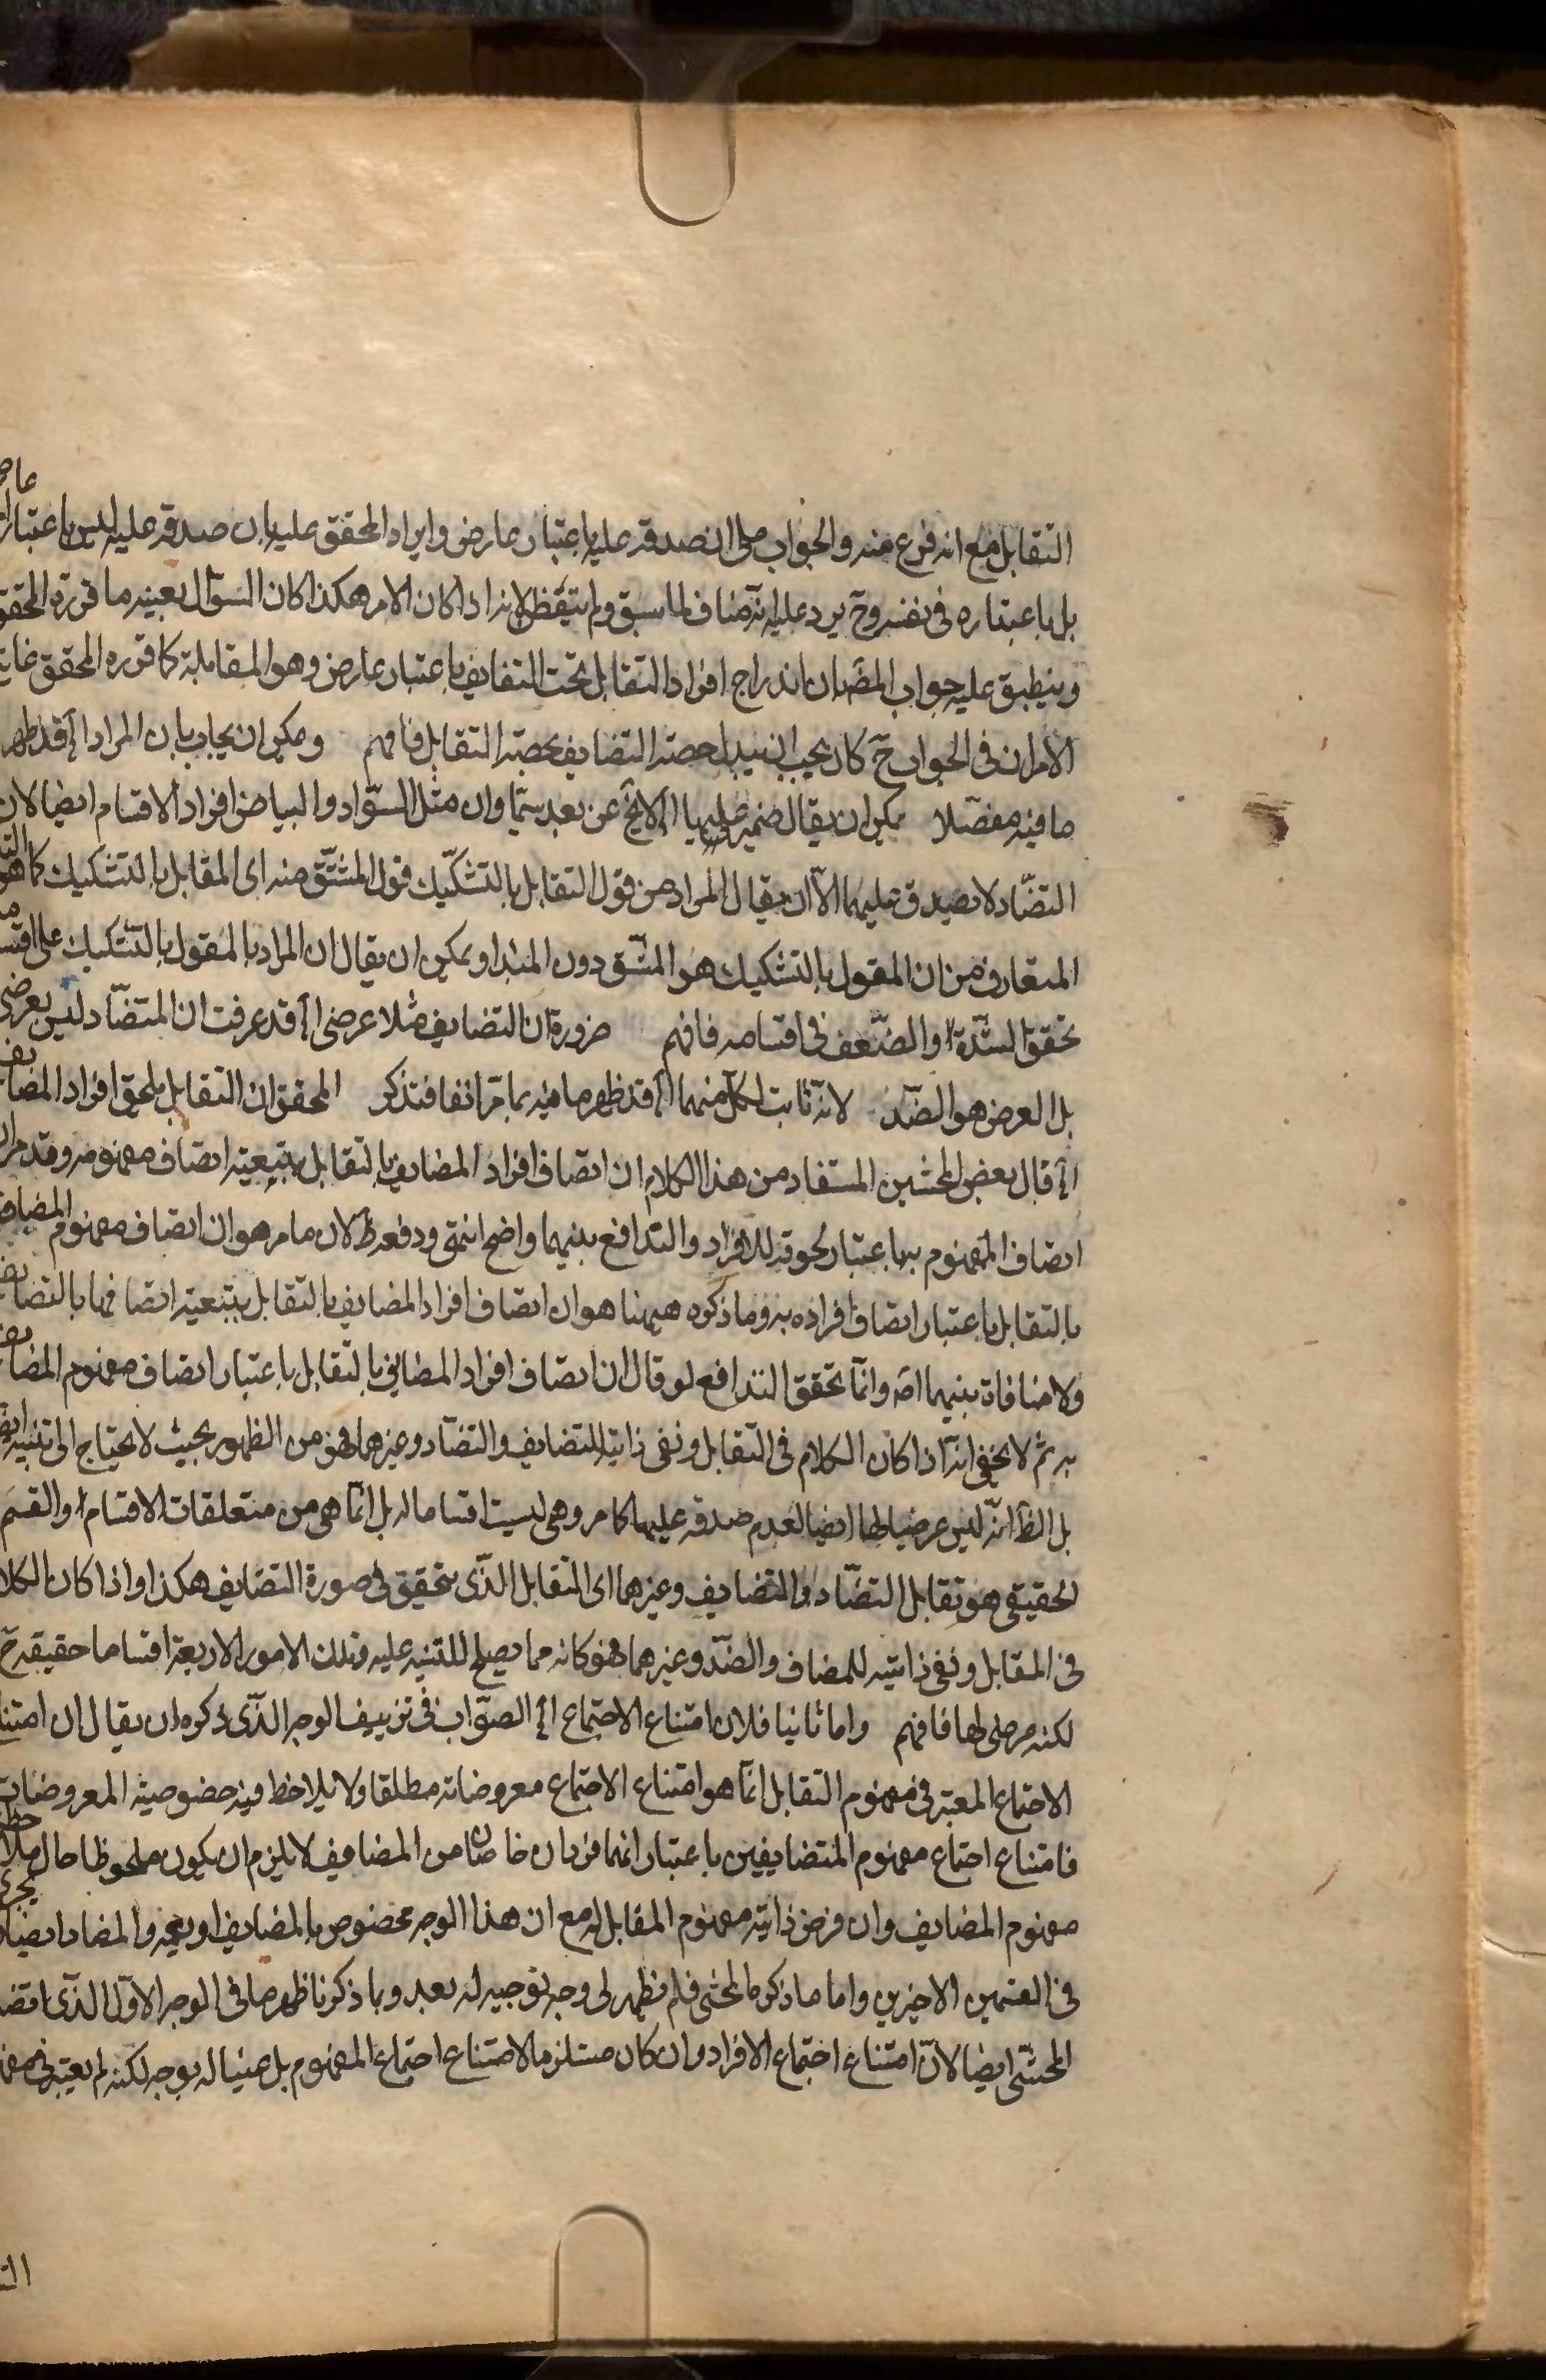 عا
التقابل مع انه فرع منه والجواب على ان صدقه عليه باعتبار عارض وايراد المحقق عليه بان صدقه عليه ليس باعتبار
بل باعتباره فى نفسه وح يرد عليه انه مناف لما سبق ولم يتيقظ لانه اذا كان الامر هكذا كان السؤال بعينه ما قرره المحقق
وينطبق عليه جواب المص بان اندراج افراد التقابل تحت التضايف باعتبار عارض وهو المقابلة كما قرره المحقق غاية
الامر ان فى الجواب ح كان يجب ان يبدل حصة التضايف بحصة التقابل فافهم ويمكن ان يجاب بان المراد الخ قد ظهر
ما فيه مفصلا يمكن ان يقال ضمير عليها الخ لا يخ عن بعد سيما وان مثل السواد والبياض افراد الاقسام ايضا لان
التضاد لا يصدق عليهما الا ان يقال المراد من قول التقابل بالتشكيك قول المشتق منه اى المقابل بالتشكيك كما هو
المتعارف من ان المقول بالتشكيك هو المشتق دون المبدا ويمكن ان يقال ان المراد بالمقول بالتشكيك على
تحقق الشدة والضعف فى اقسامه فافهم ضرورة ان التضايف مثلا عرضى الخ قد عرفت ان المتضاد ليس بعرضى
بل العرض هو الضد لانه ثابت لكل منهما الخ قد ظهر ما فيه بما مر انفا فتذكر المحقق ان التقابل يلحق افراد المضايف
الخ قال بعض المحشين المستفاد من هذا الكلام ان اتصاف افراد المضايف بالتقابل بتبعية اتصاف مفهومه وقد مر ان
اتصاف المفهوم بها باعتبار لحوقه للافراد والتدافع بينهما واضح انتهى ودفعه ظ لان ما مر هو ان اتصاف مفهوم المضايف
بالتقابل باعتبار اتصاف افراده به وما ذكره ههنا هو ان اتصاف افراد المضايف بالتقابل بتبعية اتصافها بالتضايف
ولا منافاة بينهما اصه وانما تحقق التدافع لو قال ان اتصاف افراد المضايف بالتقابل باعتبار اتصاف مفهوم المضايف
به ثم لا يخفى انه اذا كان الكلام فى التقابل ونفى ذاتيته للتضايف والتضاد وغيرهما فهو من الظهور بحيث لا يحتاج الى تنبيه
بل الظ انه ليس عرضيا لها ايضا لعدم صدقه عليها كما مر وهى ليست اقساما له بل انما هى من متعلقات الاقسام والقسم
الحقيقى هو تقابل التضاد والتضايف وغيرهما اى التقابل الذى يتحقق فى صورة التضايف هكذا واذا كان الكلا
فى المقابل ونفى ذاتيته للمضاف والضد وغيرهما فهو كانه مما يصلح للتنبيه عليه وتلك الامور الاربعة اقساما حقيقة ح
لكنه عرضى لها فافهم واما ثانيا فلان امتناع الاجتماع الخ الصواب فى تزييف الوجه الذى ذكره ان يقال ان امتنا
الاجتماع المعتبر فى مفهوم التقابل انما هو امتناع الاجتماع معروضاته مطلقا ولا يلاحظ فيه خصوصية المعروضات
فامتناع اجتماع مفهوم المتضايفين باعتبار انهما فردان خاصان من المضايف لا يلزم ان يكون ملحوظا حال ملاحظ
مفهوم المضايف وان فرض ذاتية مفهوم المقابل له مع ان هذا الوجه مخصوص بالمضايف او يعمه والمضاد ايضا
فى القسمين الاخيرين واما ما ذكره المحشى فلم يظهر لى وجه توجيه له بعد وبما ذكرنا ظهر ما فى الوجه الاول الذى
المحشى ايضا لان امتناع اجتماع الافراد وان كان مستلزما لامتناع اجتماع المفهوم بل عينا له بوجه لكنه لم يعتبر فى